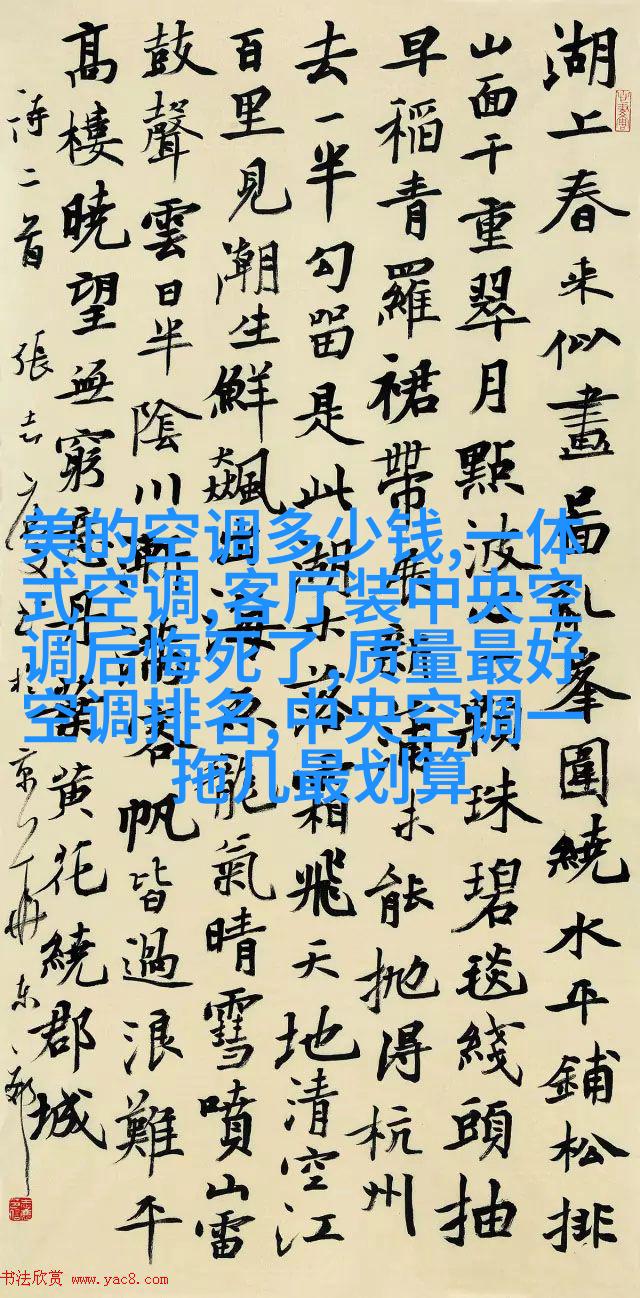 湖上春来似畫啚亂峯圍繞水平鋪松排
山面千重翠月點波心一顆珠碧毯綫頭抽
早稻青羅裙帶展新蒲未能抛得杭州
去一半勾留是此湖木落霜飛天地清空江
百里見潮生鮮飆出海魚龍氣晴雪噴山雷
鼓聲雲日半陰川漸滿客帆皆過浪難平
高樓曉望無窮意丹葉黄花繞郡城
詩二首 張志
美的空调多少钱,一体
式空调,客厅装中央空
调后悔死了,质量最好
空调排名,中央空调一
拖几最划算
书法欣赏 www.yac8.com